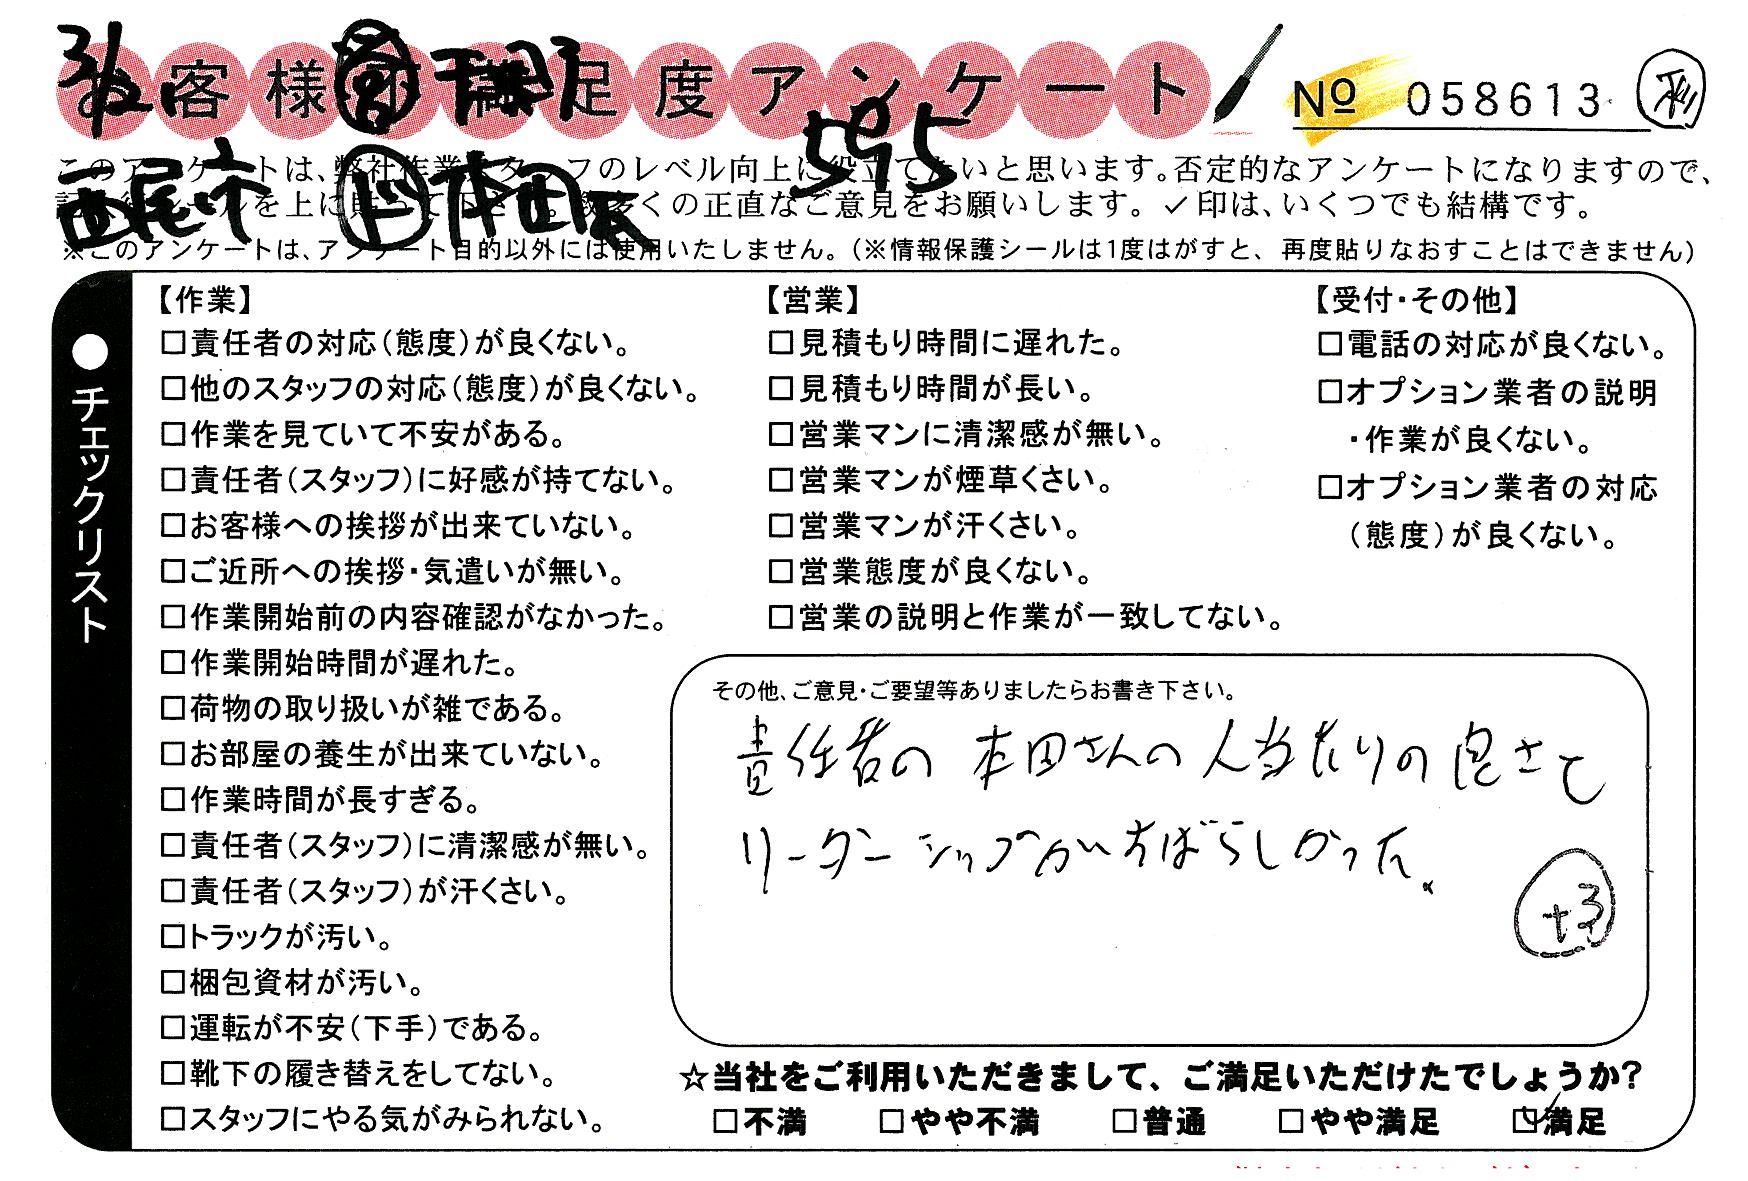 3/2
お客様不満足度アンケート
No 058613
595
西尾市 ド 本田
このアンケートは、弊社作業スタッフのレベル向上に役立てたいと思います。否定的なアンケートになりますので、
シールを上に貼って下さい。数多くの正直なご意見をお願いします。✓印は、いくつでも結構です。
※このアンケートは、アンケート目的以外には使用いたしません。(※情報保護シールは1度はがすと、再度貼りなおすことはできません)
●チェックリスト
【作業】
□責任者の対応(態度)が良くない。
□他のスタッフの対応(態度)が良くない。
□作業を見ていて不安がある。
□責任者(スタッフ)に好感が持てない。
□お客様への挨拶が出来ていない。
□ご近所への挨拶・気遣いが無い。
□作業開始前の内容確認がなかった。
□作業開始時間が遅れた。
□荷物の取り扱いが雑である。
□お部屋の養生が出来ていない。
□作業時間が長すぎる。
□責任者(スタッフ)に清潔感が無い。
□責任者(スタッフ)が汗くさい。
□トラックが汚い。
□梱包資材が汚い。
□運転が不安(下手)である。
□靴下の履き替えをしてない。
□スタッフにやる気がみられない。
【営業】
□見積もり時間に遅れた。
□見積もり時間が長い。
□営業マンに清潔感が無い。
□営業マンが煙草くさい。
□営業マンが汗くさい。
□営業態度が良くない。
□営業の説明と作業が一致してない。
【受付・その他】
□電話の対応が良くない。
□オプション業者の説明
・作業が良くない。
□オプション業者の対応
(態度)が良くない。
その他、ご意見・ご要望等ありましたらお書き下さい。
責任者の 本田さんの人当たりの良さと
リーダーシップがすばらしかった。
+3
☆当社をご利用いただきまして、ご満足いただけたでしょうか?
□不満 □やや不満 □普通 □やや満足 ☑満足